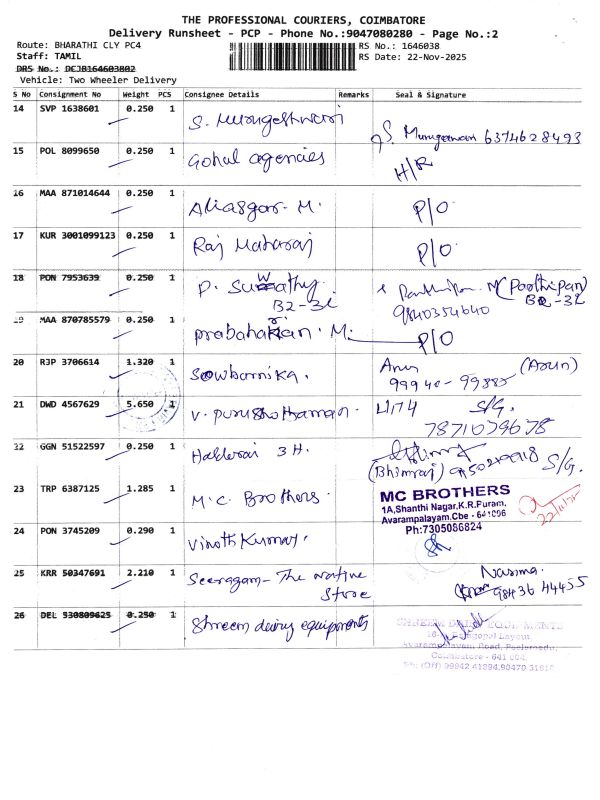 THE PROFESSIONAL COURIERS, COIMBATORE
Delivery Runsheet - PCP - Phone No.:9047080280 - Page No.:2
Route: BHARATHI CLY PC4
RS No.: 1646038
Staff: TAMIL
RS Date: 22-Nov-2025
DRS No.: DCJB164603802
Vehicle: Two Wheeler Delivery
S No Consignment No Weight PCS Consignee Details Remarks Seal & Signature
14 SVP 1638601 0.250 1
S. Murugeshwari
S. Murugeswari 6374628493
15 POL 8099650 0.250 1
Gohul agencies
H/R
16 MAA 871014644 0.250 1
Aliasgar. M. P/O
17 KUR 3001099123 0.250 1
Raj Maharaj P/O
18 PON 7953639 0.250 1
P. Sumathy. (Poothipan)
B2-3L B2-3L
9840354640
19 MAA 870785579 0.250 1
prabaharan. M. P/O
20 RJP 3706614 1.320 1
Sowbarnika. Arun (Arun)
99940-99885
21 DWD 4567629 5.650 1
V. purushothaman. S/G.
7871039678
22 GGN 51522597 0.250 1
3H.
(Bhimraj) S/G.
23 TRP 6387125 1.285 1
M.C. Brothers.
MC BROTHERS
1A,Shanthi Nagar,K.R.Puram,
Avarampalayam.Cbe - 641006
Ph:7305086824
22/11/25
24 PON 3745209 0.290 1
Vinoth Kumar.
25 KRR 50347691 2.210 1
Seeragam - The native
Store
Nasima.
98436 44455
26 DEL 530809625 0.250 1
Shreem dairy equipments
SHREEM DAIRY EQUIPMENTS
Avarampalayam Road, Peelamedu,
Coimbatore - 641 004.